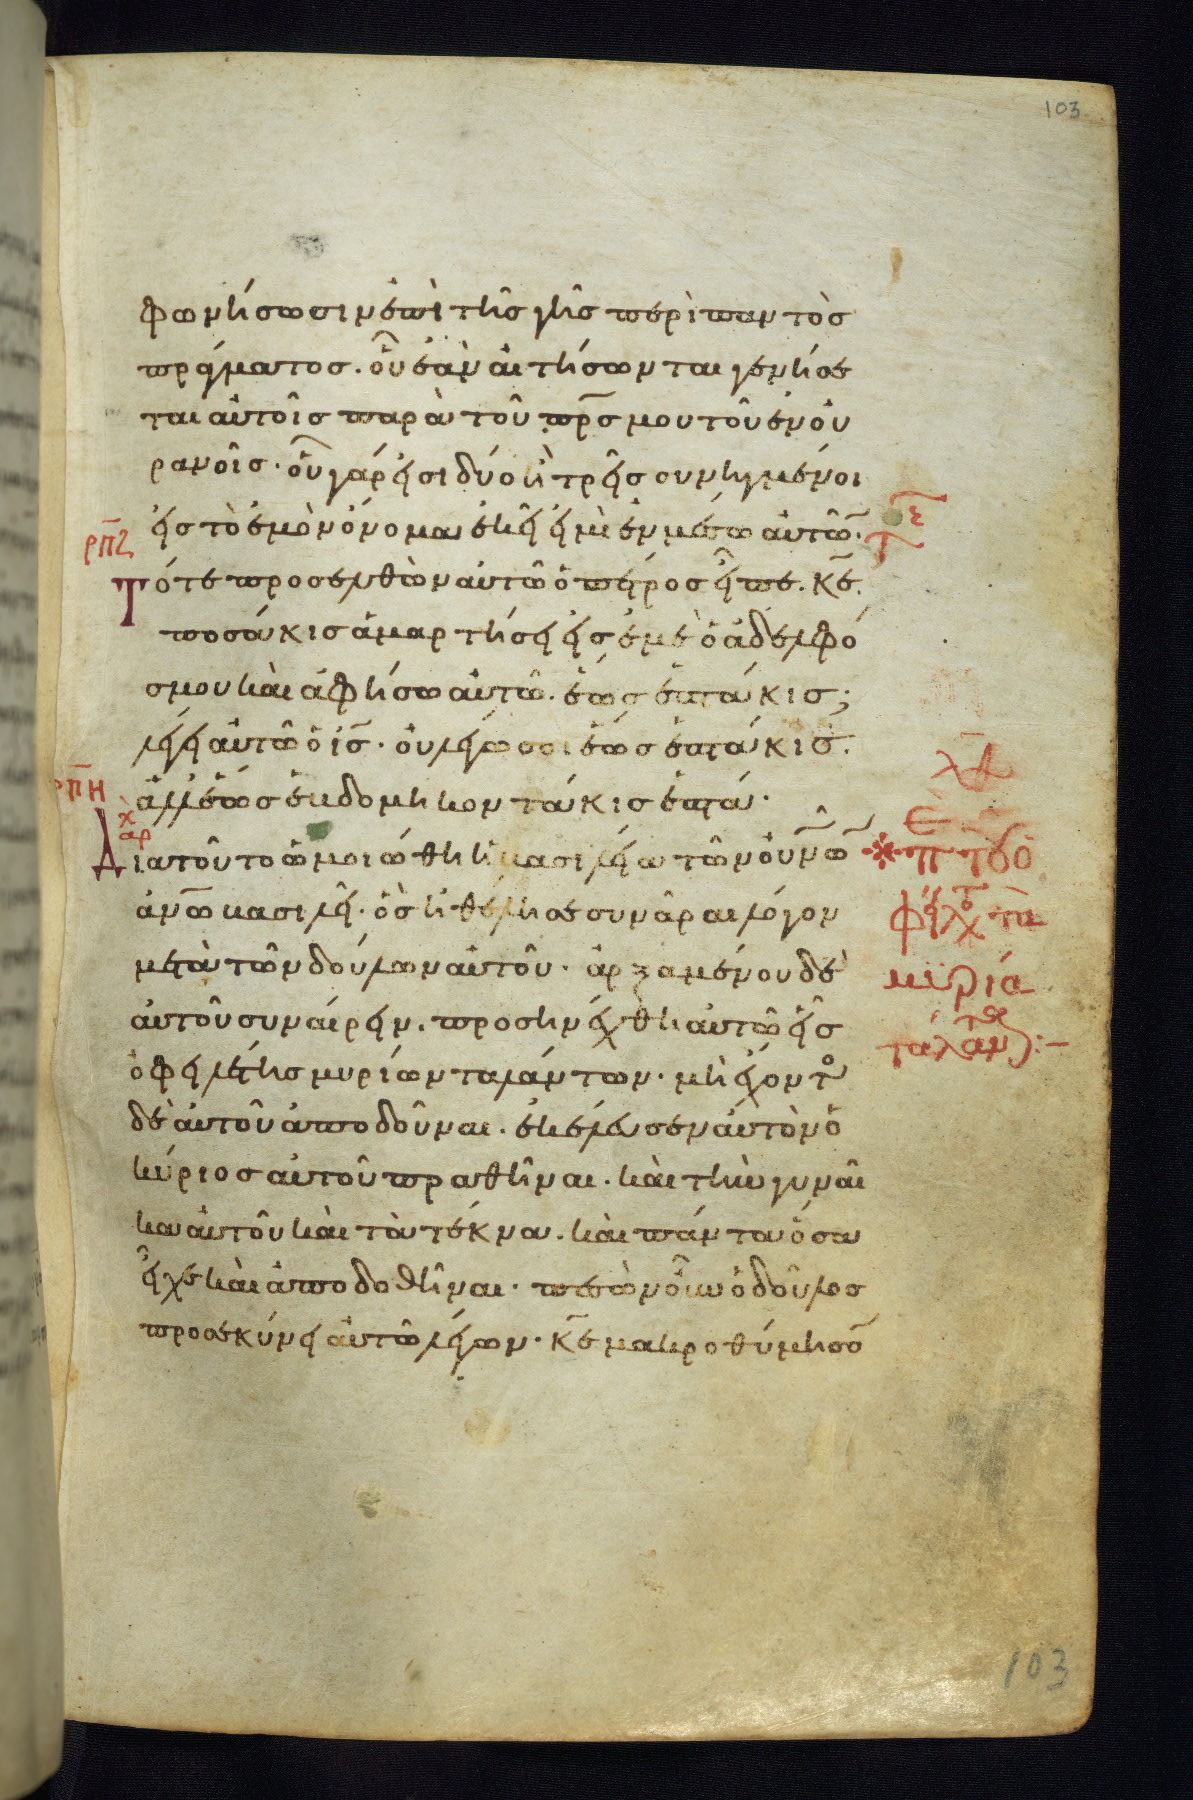 103
φωνήσωσιν ἐπὶ τῆς γῆς περὶ παντὸς
πράγματος. οὗ ἐὰν αἰτήσωνται γενήσε
ται αὐτοῖς παρὰ τοῦ πρ̅ς μου τοῦ ἐν οὐ
ρανοῖς· οὗ γάρ εἰσι δύο ἢ τρεῖς συνηγμένοι
εἰς τὸ ἐμὸν ὄνομα ἐκεῖ εἰμὶ ἐν μέσω αὐτῶ̅.
ρπζ
Τότε προσελθὼν αὐτῶ ὁ πέτρος εἶπε. κ̅ε.
ποσάκις ἁμαρτήσει εἰς ἐμὲ ὁ ἀδελφό
ς μου καὶ ἀφήσω αὐτῶ. ἕως ἑπτάκις;
λέγει αὐτῶ ὁ ι̅ς· οὐ λέγω σοι ἕως ἑπτάκις.
ρπη
ἀλλ' ἕως ἑβδομηκοντάκις ἑπτά·
Διατοῦτο ὡμοιώθη ἡ βασιλεία τῶν οὐν̅ω̅
ἀν̅ω βασιλεῖ· ὃς ἠθέλησε συνᾶραι λόγον
μετὰ τῶν δούλων αὐτοῦ· ἀρξαμένου δὲ
αὐτοῦ συναίρειν. προσηνέχθη αὐτῶ εἷς
ὀφειλέτης μυρίων ταλάντων· μὴ ἔχοντ
δὲ αὐτοῦ ἀποδοῦναι. ἐκέλευσεν αὐτὸν ὁ
κύριος αὐτοῦ πραθῆναι. καὶ τὴν γυναῖ
κα αὐτοῦ καὶ τὰ τέκνα. καὶ πάντα ὅσα
εἶχε καὶ ἀποδοθῆναι· πεσὼν οὖν ὁ δοῦλος
προσεκύνει αὐτῶ λέγων· κ̅ε μακροθύμησο̅
π τοῦ
τὰ
μυρία
τάλαν
103